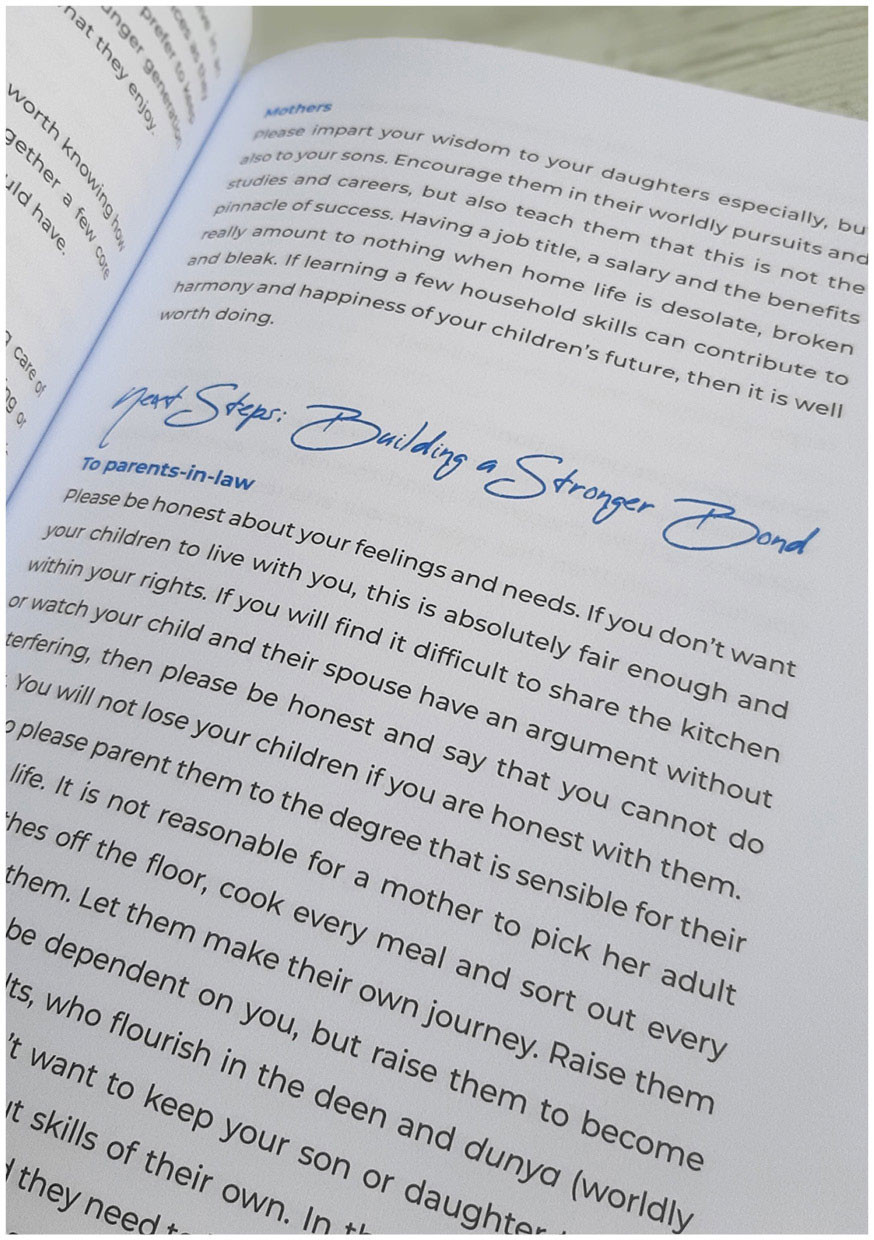 in an
as they
prefer to keep
unger generation
hat they enjoy.
worth knowing how
gether a few core
uld have.
care of
ng or
Mothers
Please impart your wisdom to your daughters especially, bu
also to your sons. Encourage them in their worldly pursuits and
studies and careers, but also teach them that this is not the
pinnacle of success. Having a job title, a salary and the benefits
really amount to nothing when home life is desolate, broken
and bleak. If learning a few household skills can contribute to
harmony and happiness of your children's future, then it is well
worth doing.
Next Steps: Building a Stronger Bond
To parents-in-law
Please be honest about your feelings and needs. If you don't want
your children to live with you, this is absolutely fair enough and
within your rights. If you will find it difficult to share the kitchen
or watch your child and their spouse have an argument without
terfering, then please be honest and say that you cannot do
. You will not lose your children if you are honest with them.
o please parent them to the degree that is sensible for their
life. It is not reasonable for a mother to pick her adult
hes off the floor, cook every meal and sort out every
them. Let them make their own journey. Raise them
be dependent on you, but raise them to become
lts, who flourish in the deen and dunya (worldly
't want to keep your son or daughter
ut skills of their own. In th
they need